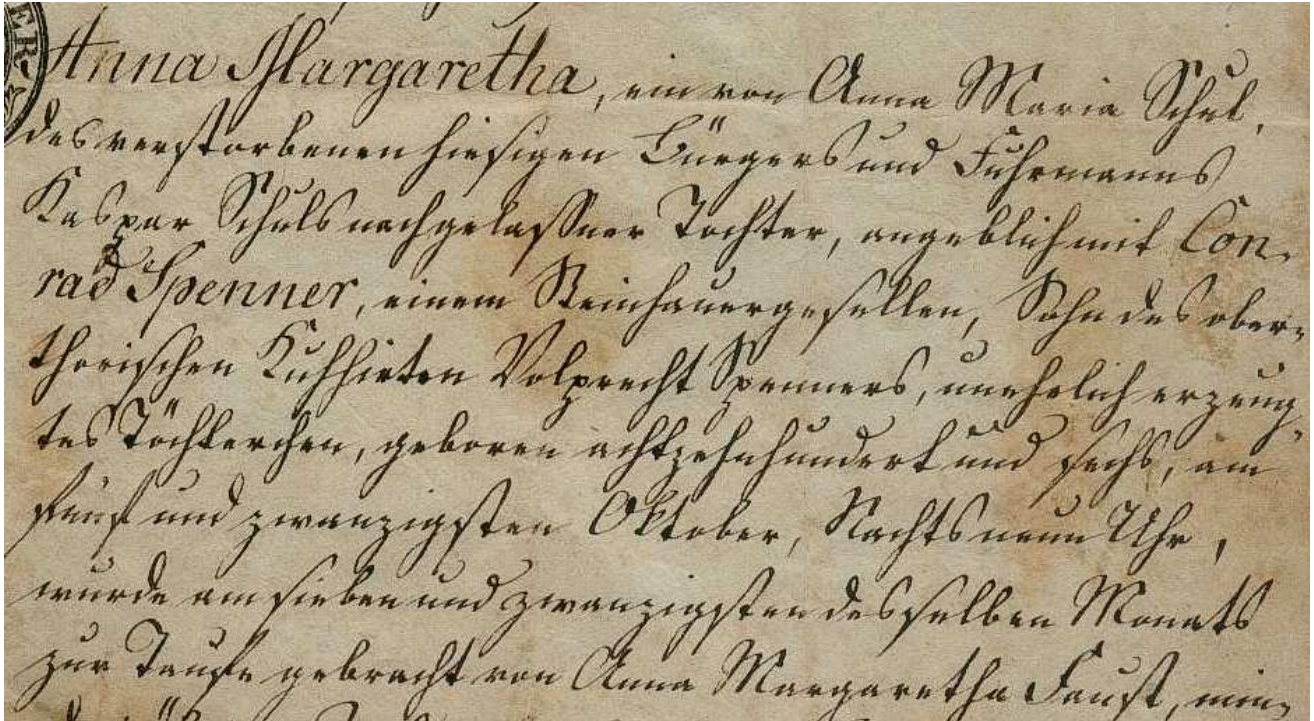 ER-
Anna Margaretha, ein von Anna Maria Schul,
des verstorbenen hiesigen Bürgers und Fuhrmanns
Kaspar Schuls nachgelaßner Tochter, angeblich mit Con-
rad Spenner, einem Steinhauergesellen, Sohn des ober-
thorischen Kuhhirten Volprecht Spenners, unehelich erzeug-
tes Töchterchen, geboren achtzehnhundert und sechs, am
fünf und zwanzigsten Oktober, Nachts neun Uhr,
wurde am sieben und zwanzigsten desselben Monats
zur Taufe gebracht von Anna Margaretha Faust,